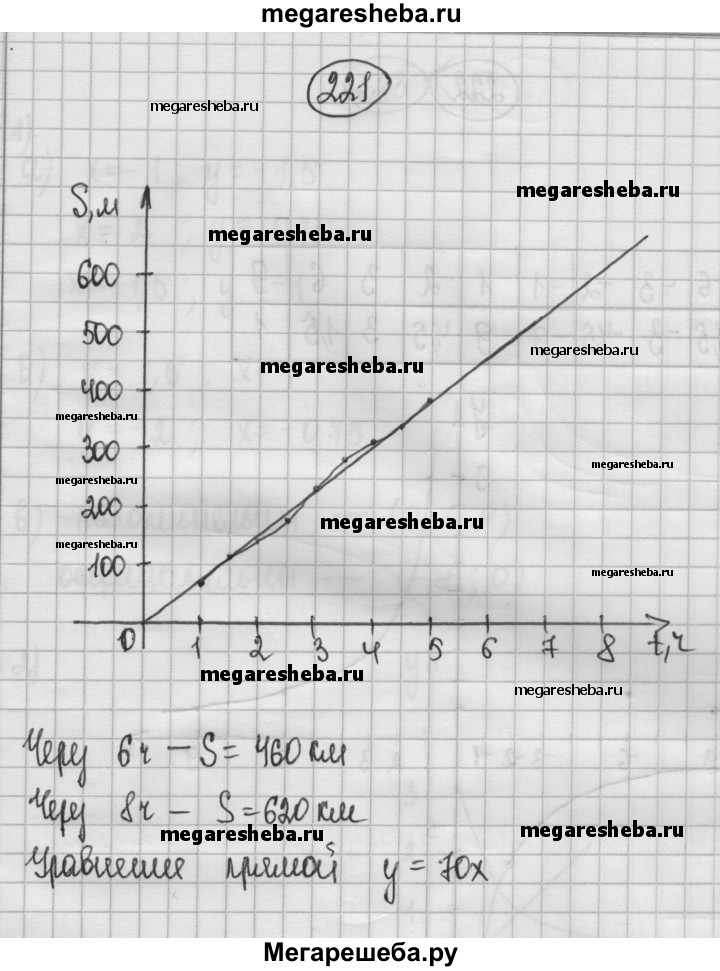 megaresheba.ru
221
megaresheba.ru
megaresheba.ru
S, м
megaresheba.ru
600
500
megaresheba.ru
megaresheba.ru
400
megaresheba.ru
300
megaresheba.ru
megaresheba.ru
200
megaresheba.ru
megaresheba.ru
100
megaresheba.ru
0 1 2 3 4 5 6 7 8 t, ч
megaresheba.ru
megaresheba.ru
Через 6ч – S = 460 км
Через 8ч – S = 620 км
megaresheba.ru
megaresheba.ru
Уравнение прямой y = 70x
Мегарешеба.ру